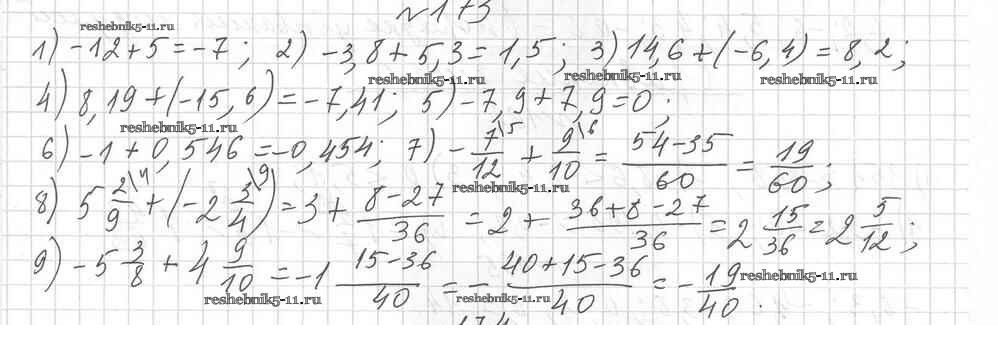 №173
reshebnik5-11.ru
1) -12+5=-7; 2) -3,8+5,3=1,5; 3) 14,6+(-6,4)=8,2;
reshebnik5-11.ru reshebnik5-11.ru reshebnik5-11.ru
4) 8,19+(-15,6)=-7,41; 5) -7,9+7,9=0;
reshebnik5-11.ru
6) -1+0,546=-0,454; 7) -7/12\5 + 9/10\6 = (54-35)/60 = 19/60;
reshebnik5-11.ru
8) 5 2/9\4 + (-2 3/4\9) = 3 + (8-27)/36 = 2 + (36+8-27)/36 = 2 15/36 = 2 5/12;
9) -5 3/8 + 4 9/10 = -1 (15-36)/40 = -(40+15-36)/40 = -19/40.
reshebnik5-11.ru reshebnik5-11.ru reshebnik5-11.ru